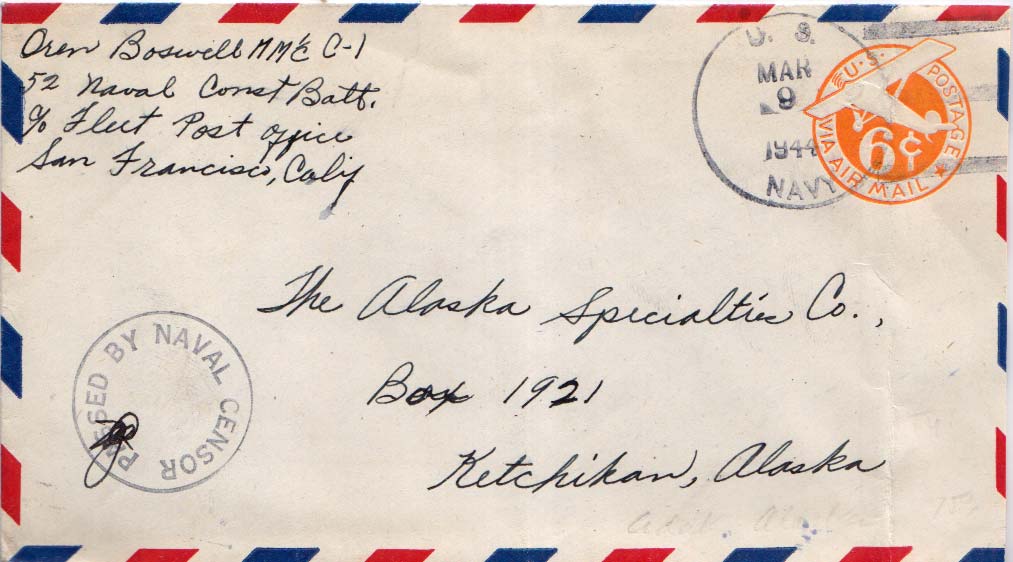 Oren Boswell MM1/c C-1
52 Naval Const Batt.
c/o Fleet Post office
San Francisco, Calif
U. S.
MAR
9
1944
NAVY
U.S. POSTAGE
6¢
VIA AIR MAIL
The Alaska Specialties Co.,
Box 1921
Ketchikan, Alaska
PASSED BY NAVAL CENSOR
Adak, Alaska